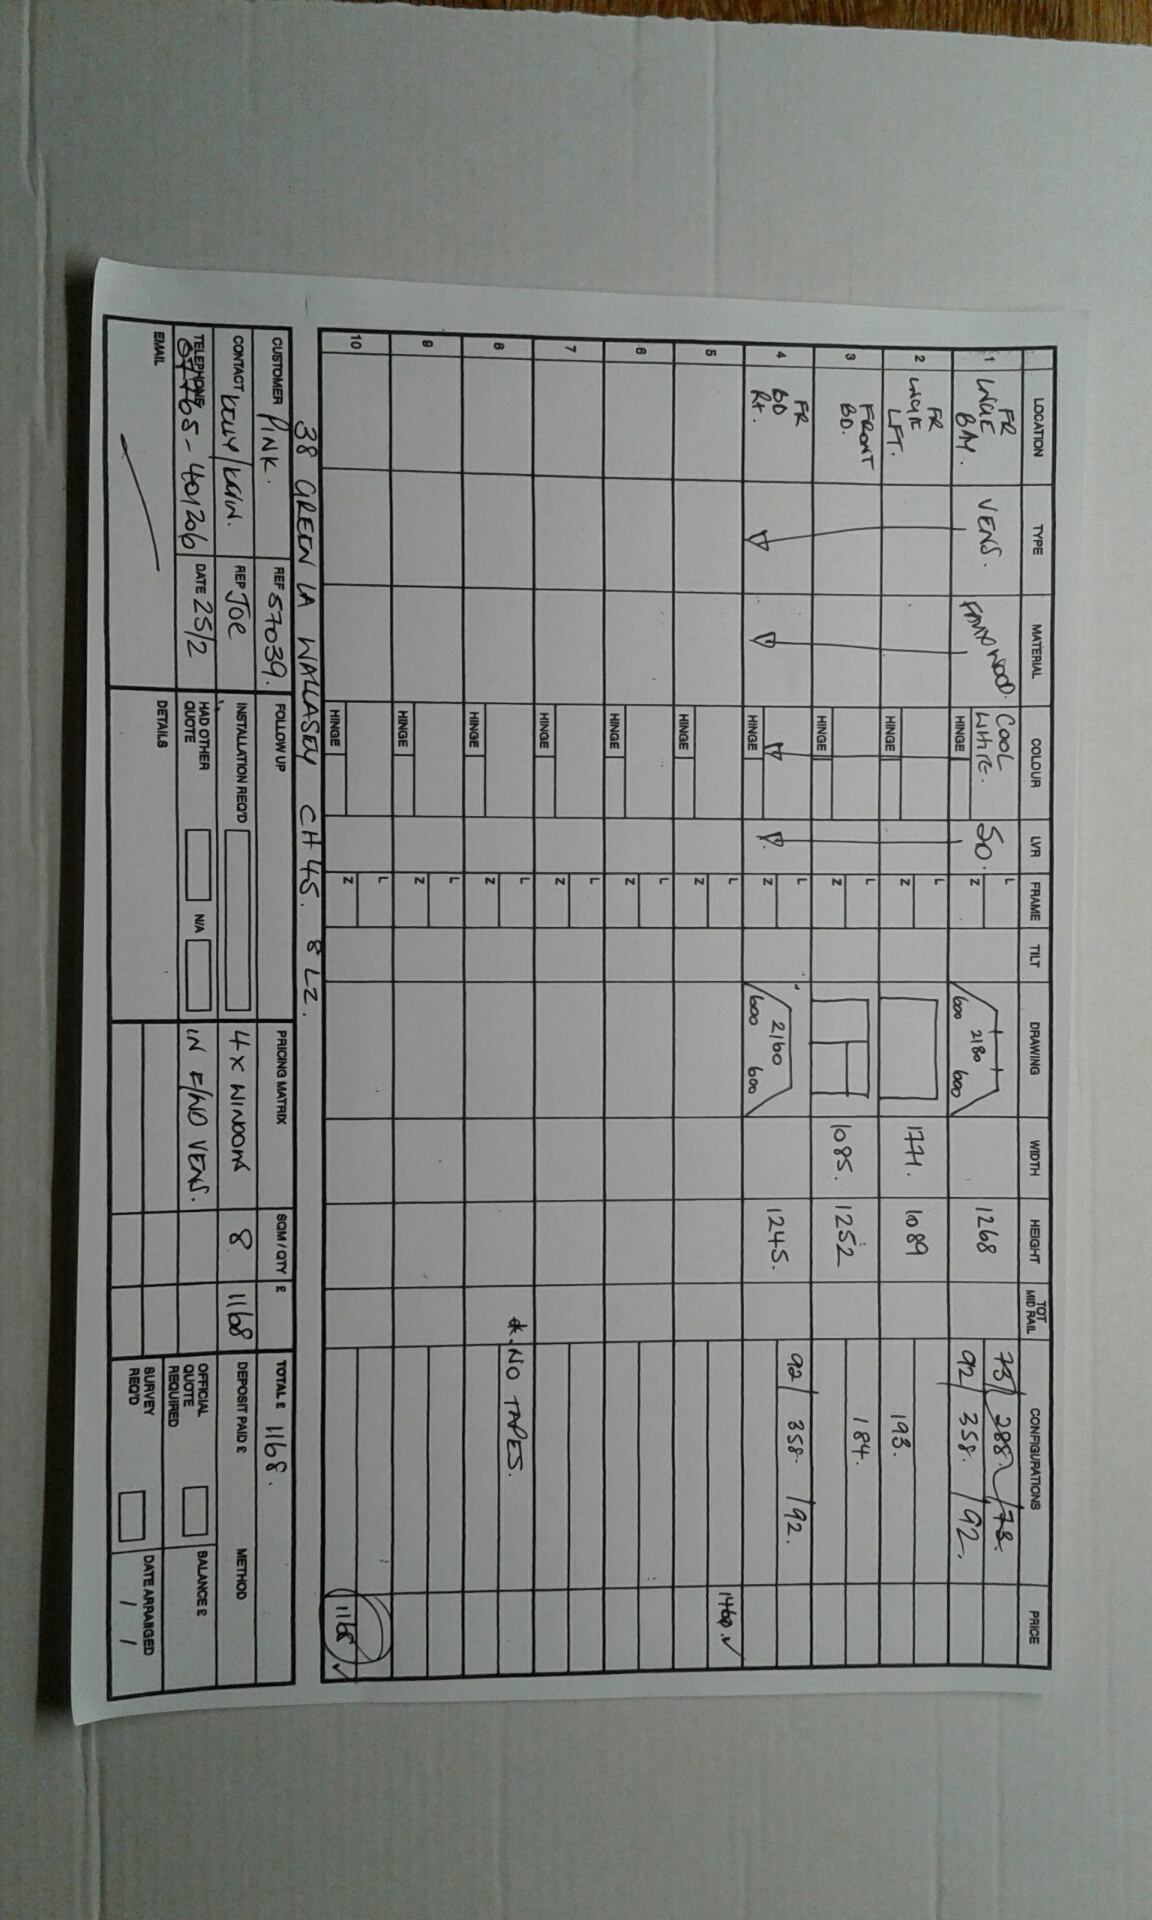 LOCATION TYPE MATERIAL COLOUR LVR FRAME TILT DRAWING WIDTH HEIGHT TOT MID RAIL CONFIGURATIONS PRICE
1 FR LNGE BAY. VENS. FAUX WOOD. COOL WHITE. HINGE 50. L Z 600 2180 600 1268 73/288/73.
92/358./92.
2 FR LNGE LFT. HINGE L Z 1771. 1089 193.
3 FRONT BD. HINGE L Z 1085. 1252 184.
4 FR BD Rt. HINGE L Z 600 2160 600 1245. 92/358./92.
5 HINGE L Z 1460.✓
6 HINGE L Z
7 HINGE L Z
8 HINGE L Z *. NO TAPES.
9 HINGE L Z
10 HINGE L Z 1168 ✓
38 GREEN LA WALLASEY CH45. 8LZ.
CUSTOMER PINK. REF 57039. FOLLOW UP PRICING MATRIX SQM / QTY £ TOTAL £ 1168.
CONTACT REP JOE INSTALLATION REQ'D 4 x WINDOWS 8 1168 DEPOSIT PAID £ METHOD
TELEPHONE 07765-401206 DATE 25/2 HAD OTHER QUOTE N/A IN F/WD VENS. OFFICIAL QUOTE REQUIRED BALANCE £
EMAIL DETAILS SURVEY REQ'D DATE ARRANGED / /